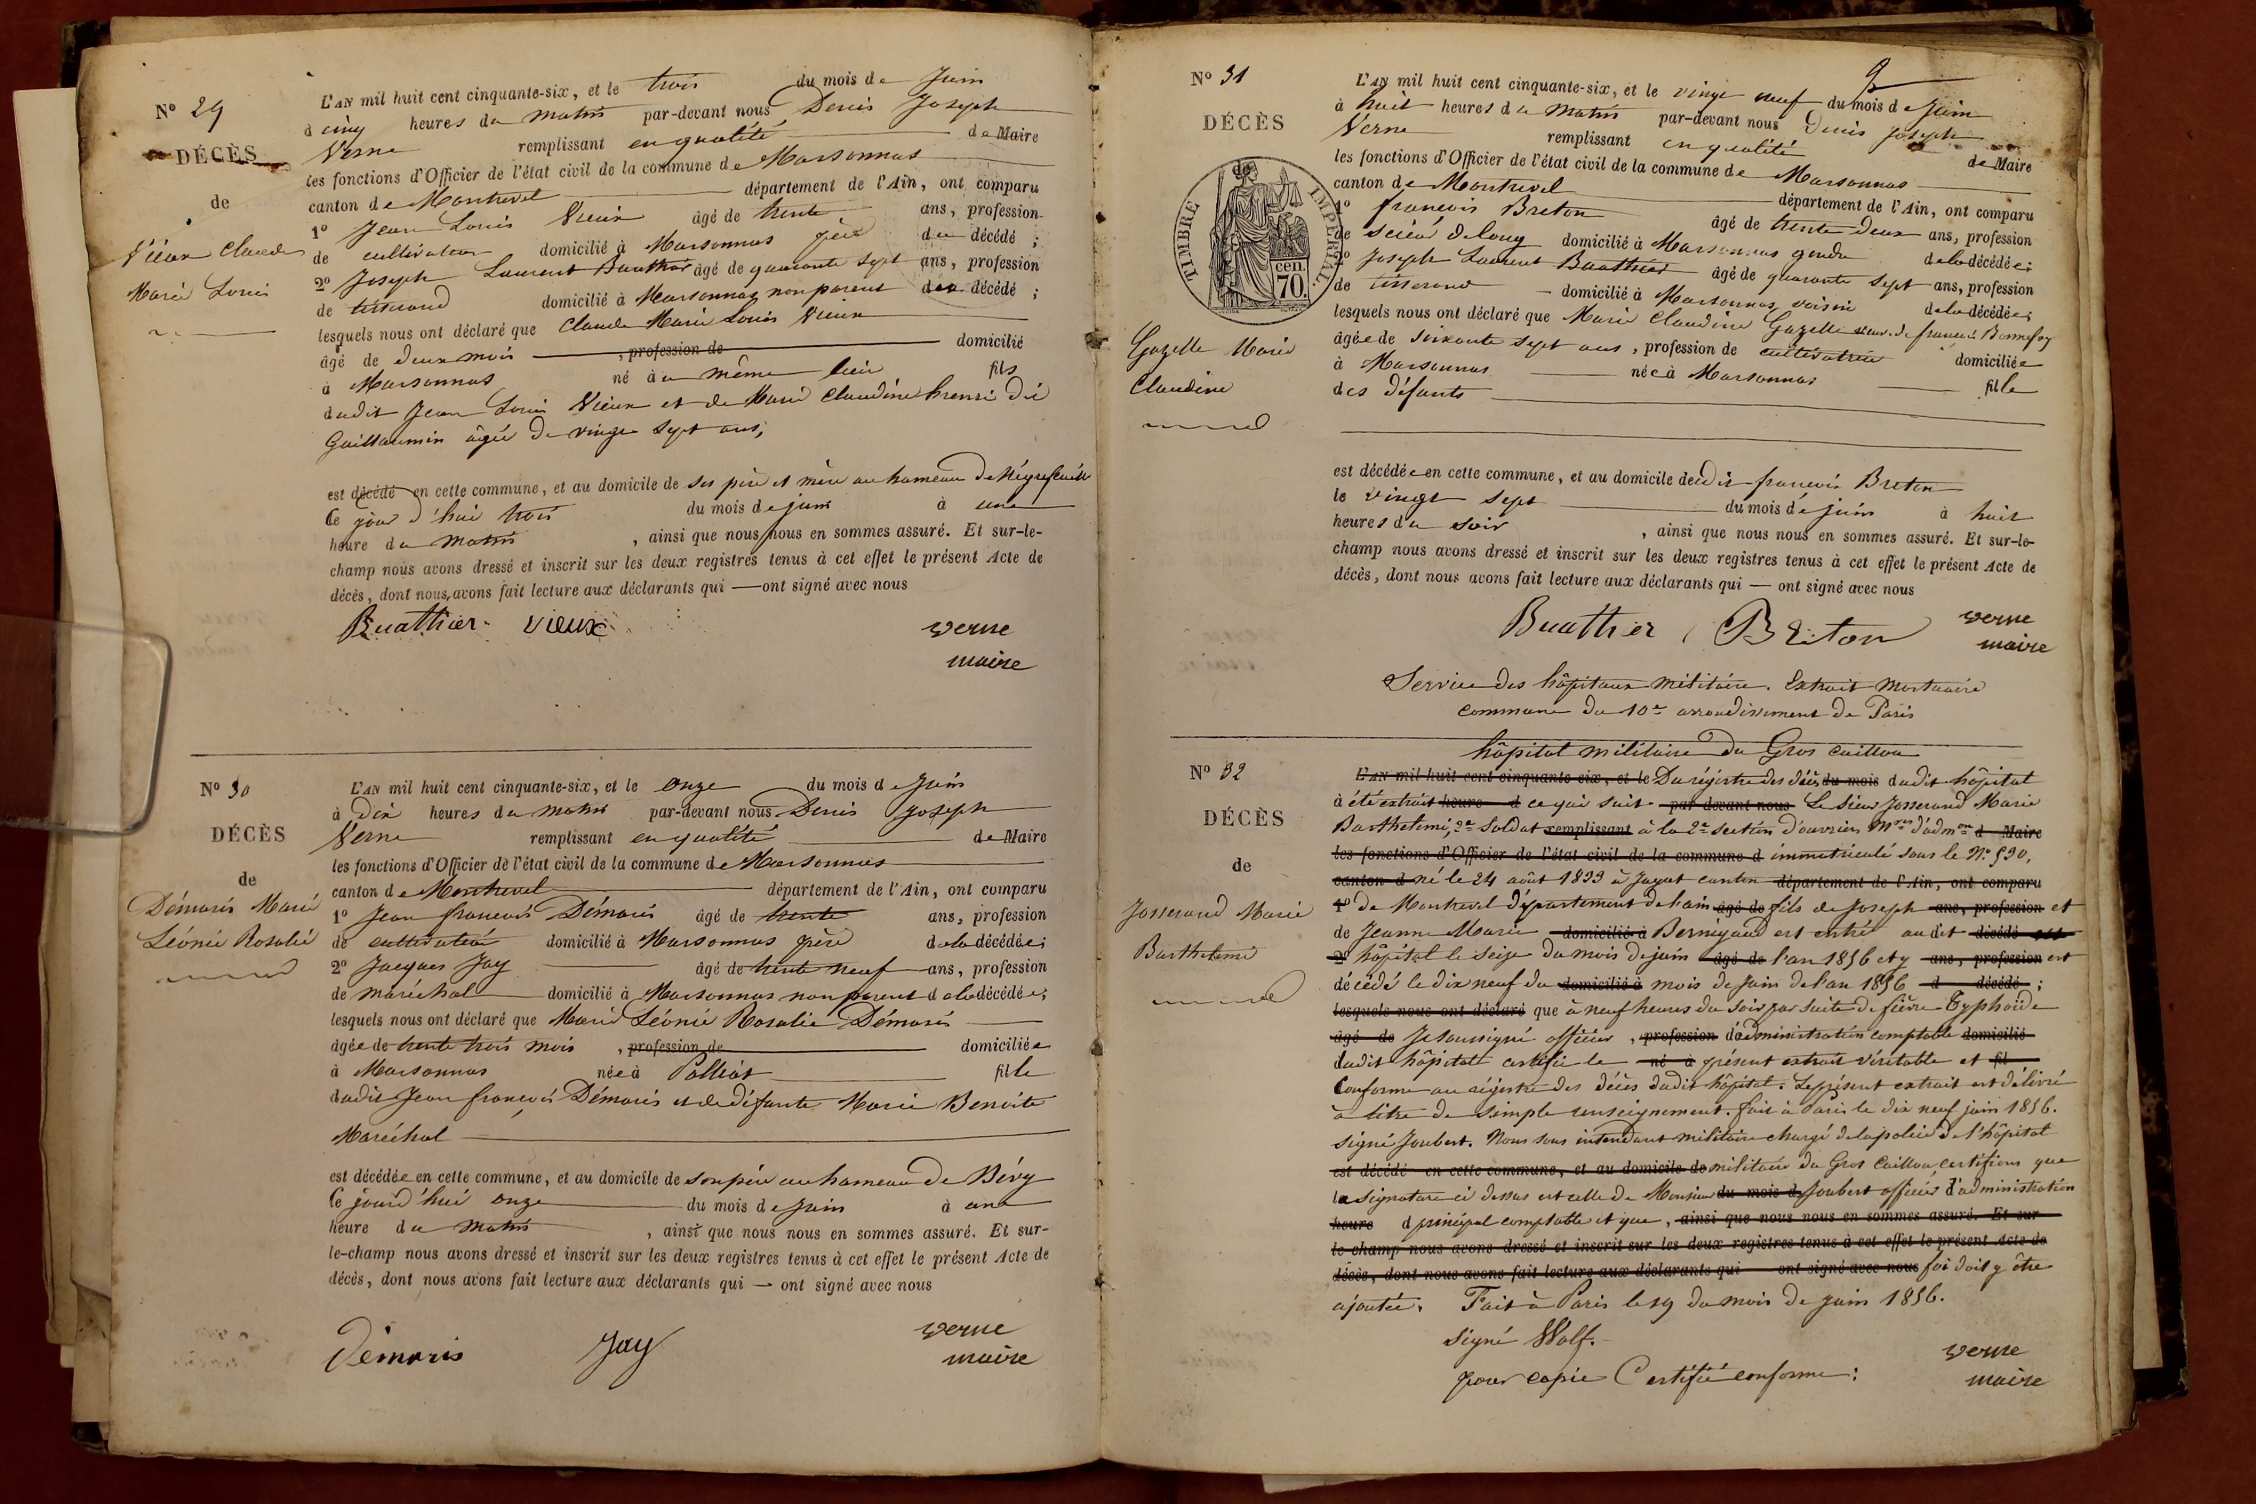 N° 29
DÉCÈS
de
Vieux Claude
Marie Louis
L'AN mil huit cent cinquante-six, et le trois du mois de Juin
à cinq heures du matin par-devant nous Denis Joseph
Verne remplissant en qualité de Maire
les fonctions d'Officier de l'état civil de la commune de Marsonnas
canton de Montrevel département de l'Ain, ont comparu
1° Jean Louis Vieux âgé de trente ans, profession
de cultivateur domicilié à Marsonnas père du décédé ;
2° Joseph Laurent Buathier âgé de quarante sept ans, profession
de tisserand domicilié à Marsonnas non parent du décédé ;
lesquels nous ont déclaré que Claude Marie Louis Vieux
âgé de deux mois , profession de domicilié
à Marsonnas né au même lieu fils
dudit Jean Louis Vieux et de Marie Claudine
Guillaumin âgée de vingt sept ans,
est décédé en cette commune, et au domicile de ses père et mère au hameau de
Ce jour d'hui trois du mois de juin à une
heure du matin , ainsi que nous nous en sommes assuré. Et sur-le-
champ nous avons dressé et inscrit sur les deux registres tenus à cet effet le présent Acte de
décès, dont nous avons fait lecture aux déclarants qui — ont signé avec nous
Buathier vieux verne
maire
N° 30
DÉCÈS
de
Démaris Marie
Léonie Rosalie
L'AN mil huit cent cinquante-six, et le onze du mois de Juin
à Dix heures du matin par-devant nous Denis Joseph
Verne remplissant en qualité de Maire
les fonctions d'Officier de l'état civil de la commune de Marsonnas
canton de Montrevel département de l'Ain, ont comparu
1° Jean françois Démaris âgé de trente ans, profession
de cultivateur domicilié à Marsonnas père de la décédée ;
2° Jacques Jay âgé de trente neuf ans, profession
de maréchal domicilié à Marsonnas non parent de la décédée ;
lesquels nous ont déclaré que Marie Léonie Rosalie Démaris
âgée de trente trois mois , profession de domiciliée
à Marsonnas née à Polliat fille
dudit Jean françois Démaris et de défunte Marie Benoite
Maréchal
est décédée en cette commune, et au domicile de son père au hameau de Bévy
Ce jourd'hui onze du mois de Juin à une
heure du matin , ainsi que nous nous en sommes assuré. Et sur-
le-champ nous avons dressé et inscrit sur les deux registres tenus à cet effet le présent Acte de
décès, dont nous avons fait lecture aux déclarants qui — ont signé avec nous
Démaris Jay verne
maire
9
N° 31
DÉCÈS
TIMBRE IMPÉRIAL
cen.
70.
Gazelle Marie
Claudine
L'AN mil huit cent cinquante-six, et le vingt neuf du mois de Juin
à huit heures du matin par-devant nous Denis Joseph
Verne remplissant en qualité de Maire
les fonctions d'Officier de l'état civil de la commune de Marsonnas
canton de Montrevel département de l'Ain, ont comparu
1° françois Breton âgé de trente deux ans, profession
de scieur de long domicilié à Marsonnas gendre de la décédée ;
2° Joseph Laurent Buathier âgé de quarante sept ans, profession
de tisserand domicilié à Marsonnas voisin de la décédée ;
lesquels nous ont déclaré que Marie Claudine Gazelle veuve de françois Bonnefoy
âgée de soixante sept ans , profession de cultivatrice domiciliée
à Marsonnas née à Marsonnas fille
des défunts
est décédée en cette commune, et au domicile dudit françois Breton
le vingt sept du mois de juin à huit
heures du soir , ainsi que nous nous en sommes assuré. Et sur-le-
champ nous avons dressé et inscrit sur les deux registres tenus à cet effet le présent Acte de
décès, dont nous avons fait lecture aux déclarants qui — ont signé avec nous
Buathier Breton verne
maire
Service des hôpitaux militaire. Extrait Mortuaire
commune du 10e arrondissement de Paris
hôpital militaire du Gros caillou
N° 32
DÉCÈS
de
Josserand Marie
Barthelemi
L'AN mil huit cent cinquante-six, et le Du régistre des décès du mois dudit hôpital
à été extrait heure d ce qui suit par devant nous Le sieur Josserand Marie
Barthelemi, 2e soldat remplissant à la 2e section d'ouvriers Mres d'admon d Maire
les fonctions d'Officier de l'état civil de la commune d immatriculé sous le N° 590,
canton d né le 24 août 1833 à Jayat canton département de l'Ain, ont comparu
1° de Montrevel département de l'ain âgé de fils de Joseph ans, profession et
de Jeanne Marie domicilié à Bernigaud est entré audit décédé
2° hôpital le seize du mois de juin âgé de l'an 1856 et y ans, profession est
décédé le dix neuf du domicilié à mois de Juin de l'an 1856 d décédé ;
lesquels nous ont déclaré que à neuf heures du soir par suite de fièvre Typhoïde
âgé de Je soussigné officier , profession d'administration comptable domicilié
dudit hôpital certifie le né à présent extrait véritable et fil
Conforme au régistre des décès dudit hôpital. Le présent extrait est délivré
à titre de simple renseignement. fait à Paris le dix neuf juin 1856.
signé Joubert. Nous sous intendant militaire chargé de la police de l'hôpital
est décédé en cette commune, et au domicile de militaire du Gros Caillou, certifions que
la signature ci dessus est celle de Monsieur du mois d Joubert officier d'administration
heure d principal comptable et que , ainsi que nous nous en sommes assuré. Et sur-
le-champ nous avons dressé et inscrit sur les deux registres tenus à cet effet le présent Acte de
décès, dont nous avons fait lecture aux déclarants qui ont signé avec nous foi doit y être
ajoutée. Fait à Paris le 19 du mois de juin 1856.
signé Wolf.
pour copie Certifié conforme : verne
maire